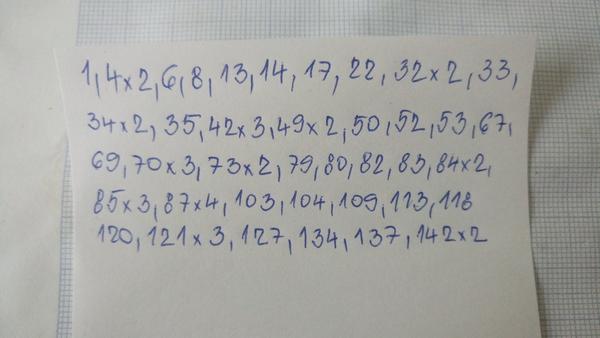 1, 4x2, 6, 8, 13, 14, 17, 22, 32x2, 33,
34x2, 35, 42x3, 49x2, 50, 52, 53, 67,
69, 70x3, 73x2, 79, 80, 82, 83, 84x2,
85x3, 87x4, 103, 104, 109, 113, 118
120, 121x3, 127, 134, 137, 142x2